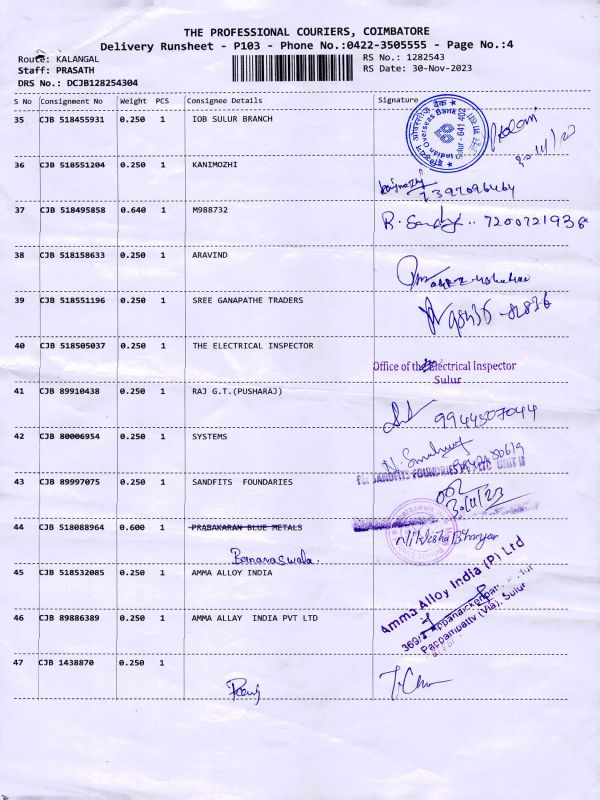 THE PROFESSIONAL COURIERS, COIMBATORE
Delivery Runsheet - P103 - Phone No.:0422-3505555 - Page No.:4
Route: KALANGAL
RS No.: 1282543
Staff: PRASATH
RS Date: 30-Nov-2023
DRS No.: DCJB128254304
S No Consignment No Weight PCS Consignee Details Signature
35 CJB 518455931 0.250 1 IOB SULUR BRANCH
Indian Overseas Bank
Sulur - 641 402
36 CJB 518551204 0.250 1 KANIMOZHI
Kanimozhi
7397096464
37 CJB 518495858 0.640 1 M988732
R. Sandhya.. 7200721936
38 CJB 518158633 0.250 1 ARAVIND
39 CJB 518551196 0.250 1 SREE GANAPATHE TRADERS
98436-82836
40 CJB 518505037 0.250 1 THE ELECTRICAL INSPECTOR
Office of the Electrical Inspector
Sulur
41 CJB 89910438 0.250 1 RAJ G.T.(PUSHARAJ)
9944507044
42 CJB 80006954 0.250 1 SYSTEMS
43 CJB 89997075 0.250 1 SANDFITS FOUNDARIES
For SANDFITS FOUNDRIES PVT LTD UNIT III
44 CJB 518088964 0.600 1 PRABAKARAN BLUE METALS
Banaraswala.
45 CJB 518532085 0.250 1 AMMA ALLOY INDIA
Amma Alloy India (P) Ltd
Pappampatty (Via), Sulur
46 CJB 89886389 0.250 1 AMMA ALLOY INDIA PVT LTD
47 CJB 1438870 0.250 1